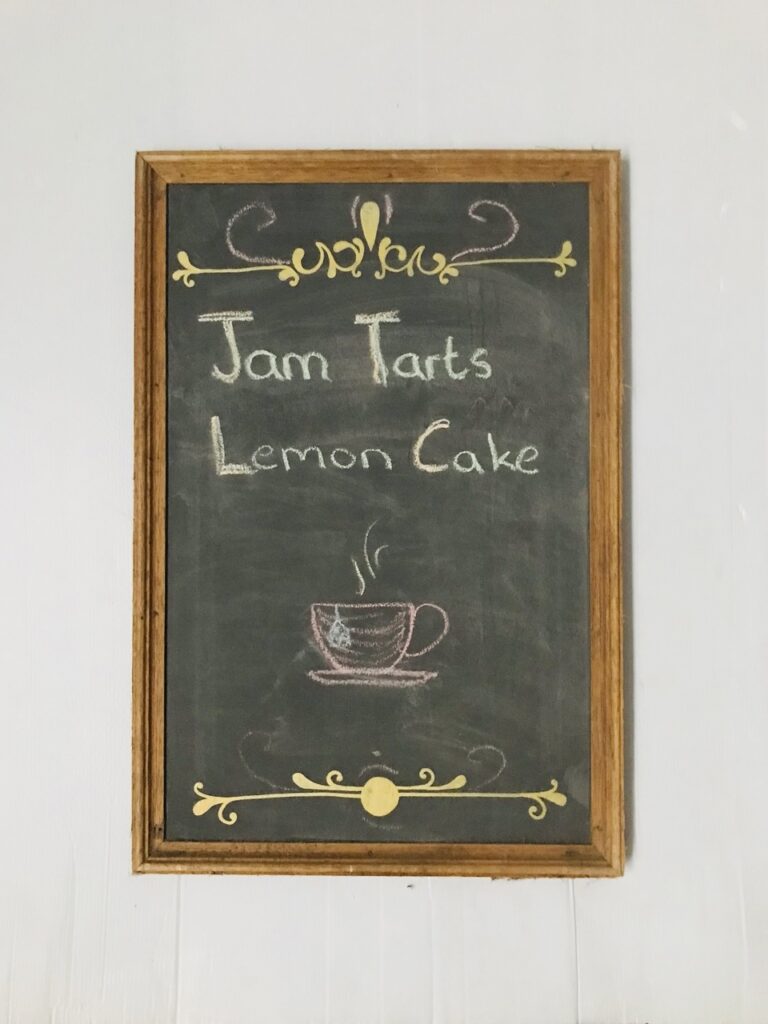 Jam Tarts
Lemon Cake